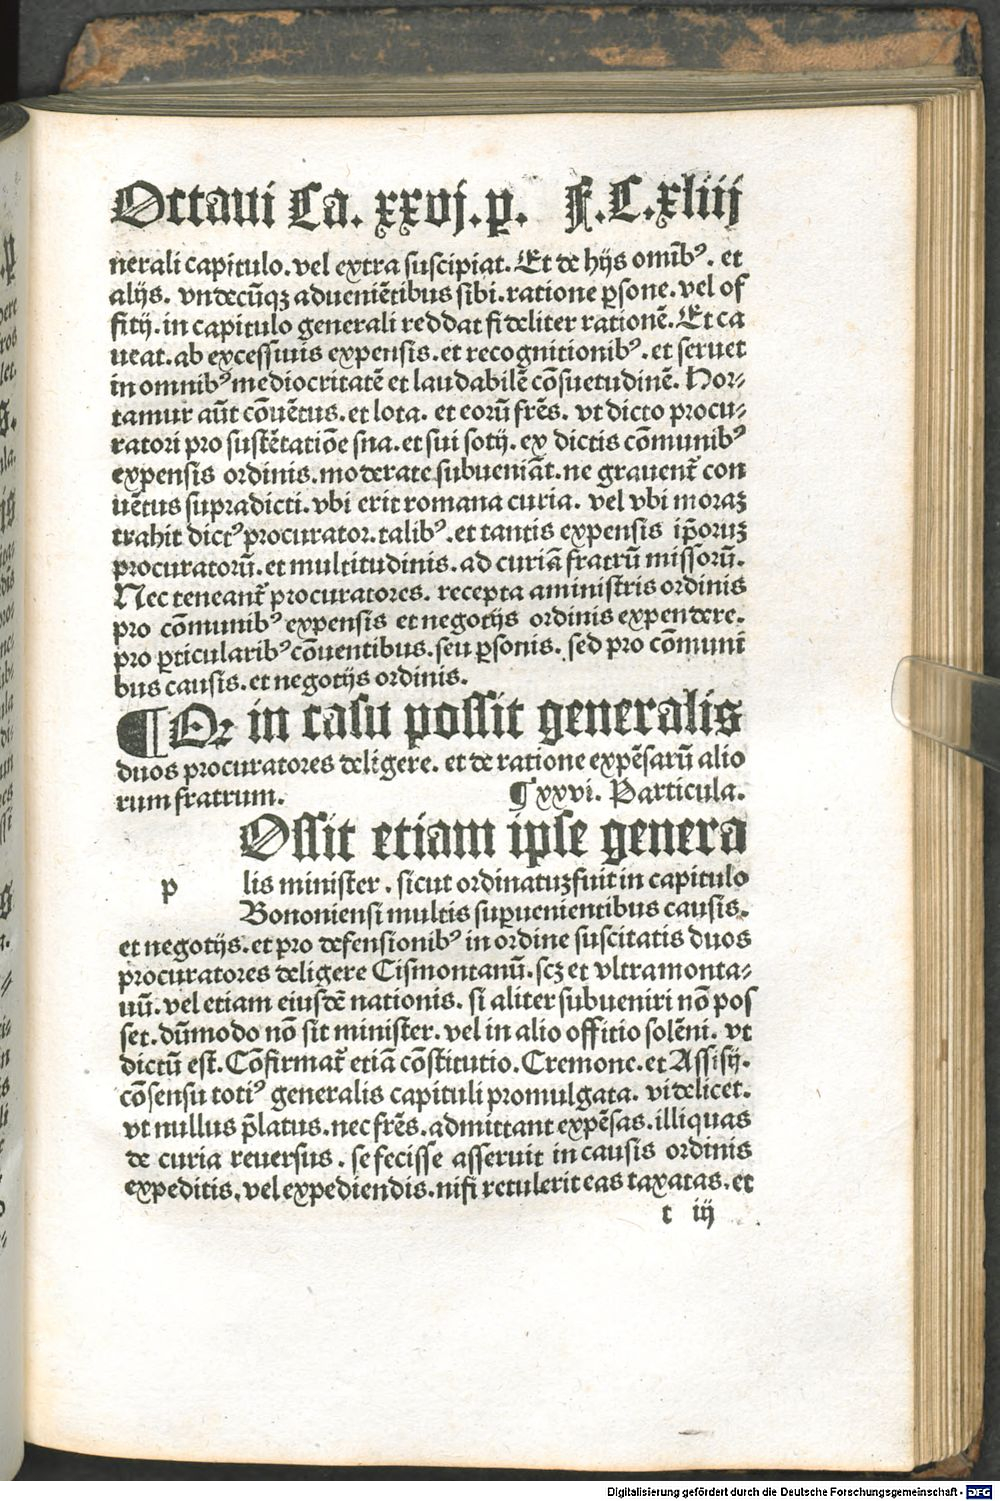 Octaui Ca. xxvj. p. F. C. xliij
nerali capitulo. vel extra suscipiat. Et de hijs omībꝰ. et
alijs. vndecūqꝫ adueniētibus sibi. ratione ꝑsone. vel of
fitij. in capitulo generali reddat fideliter rationē. Et ca
ueat. ab excessiuis expensis. et recognitionibꝰ. et seruet
in omnibꝰ mediocritatē et laudabilē cōsuetudinē. Hor⸗
tamur aūt cōuētus. et lota. et eorū frēs. vt dicto procu⸗
ratori pro sustētatiōe sna. et sui sotij. ex dictis cōmunibꝰ
expensis ordinis. moderate subueniāt. ne grauent̄ con
uētus supradicti. vbi erit romana curia. vel vbi moraꝫ
trahit dictꝰ procurator. talibꝰ. et tantis expensis ip̄oruꝫ
procuratorū. et multitudinis. ad curiā fratrū missorū.
Nec teneant̄ procuratores. recepta aministris ordinis
pro cōmunibꝰ expensis et negotijs ordinis expendere.
pro ꝑticularibꝰ cōuentibus. seu ꝑsonis. sed pro cōmuni
bus causis. et negotijs ordinis.
¶ Qꝛ in casu possit generalis
duos procuratores deligere. et de ratione expēsarū alio
rum fratrum. ¶ xxvi. Particula.
Ossit etiam ipse genera
p lis minister. sicut ordinatuꝫ fuit in capitulo
Bononiensi multis suꝑuenientibus causis.
et negotijs. et pro defensionibꝰ in ordine suscitatis duos
procuratores deligere Cismontanū. scꝫ et vltramonta⸗
uū. vel etiam eiusdē nationis. si aliter subueniri nō pos
set. dūmodo nō sit minister. vel in alio offitio solēni. vt
dictū est. Cōfirmat̄ etiā cōstitutio. Cremone. et Assisij.
cōsensu totiꝰ generalis capituli promulgata. videlicet.
vt nullus p̄latus. nec frēs. admittant expēsas. illi quas
de curia reuersus. se fecisse asseruit in causis ordinis
expeditis. vel expediendis. nisi retulerit eas taxatas. et
t iij
Digitalisierung gefördert durch die Deutsche Forschungsgemeinschaft - DFG